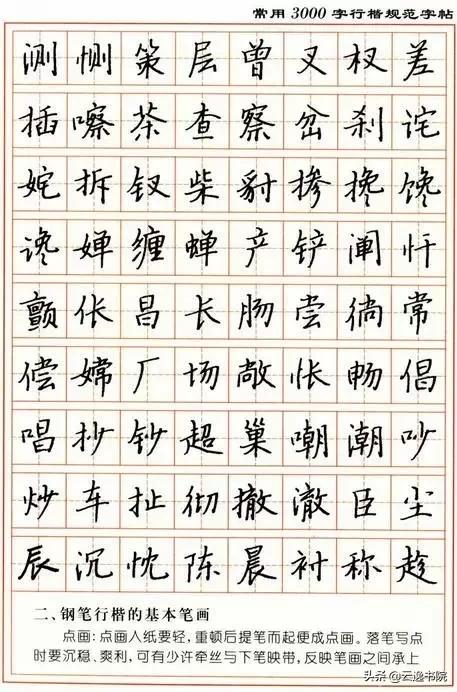 常用3000字行楷规范字帖
测恻策层曾叉杈差
插嚓茶查察岔刹诧
姹拆钗柴豺掺搀馋
谗婵缠蝉产铲阐忏
颤伥昌长肠尝徜常
偿嫦厂场敞怅畅倡
唱抄钞超巢嘲潮吵
炒车扯彻撤澈臣尘
辰沉忱陈晨衬称趁
二、钢笔行楷的基本笔画
点画：点画入纸要轻，重顿后提笔而起便成点画。落笔写点
时要沉稳、爽利，可有少许牵丝与下笔映带，反映笔画之间承上
头条 @云逸书院